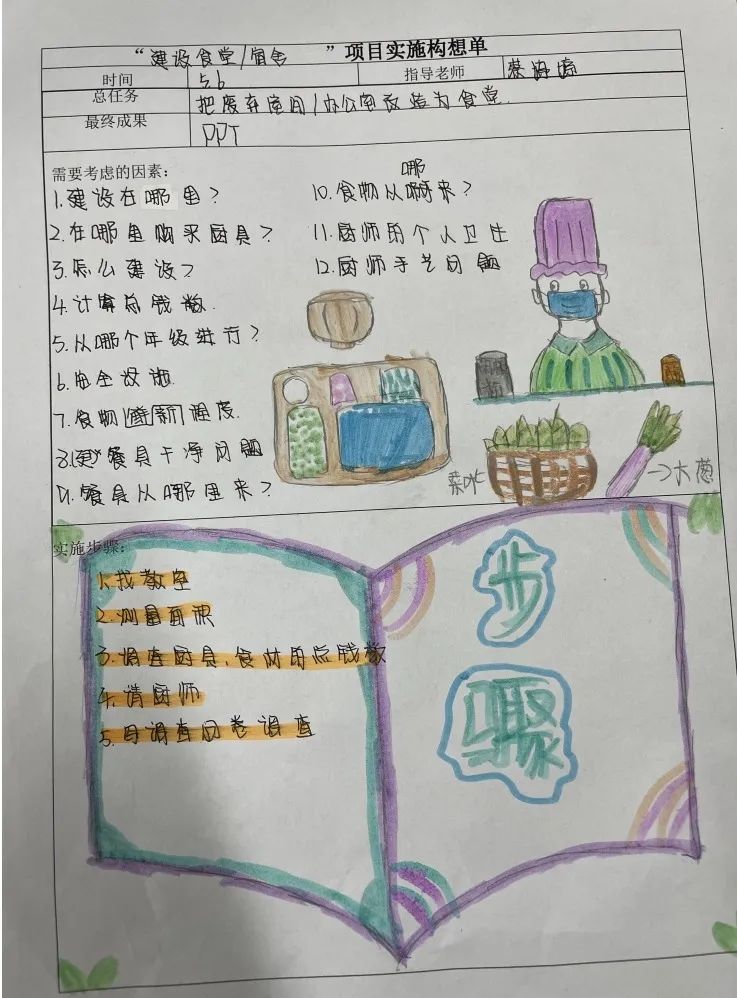 “建设食堂/宿舍 ”项目实施构想单
时间 5.6 指导老师
总任务 把废弃空间/办公室改造为食堂.
最终成果 PPT
需要考虑的因素:
1.建设在哪里?
2.在哪里购买厨具?
3.怎么建设?
4.计算总钱数.
5.从哪个年级进行?
6.安全设施.
7.食物新鲜程度.
8.餐具干净问题
9.餐具从哪里来?
哪
10.食物从啊来?
11.厨师的个人卫生
12.厨师手艺问题
菜
大葱
实施步骤:
1.找教室
2.测量面积
3.调查厨具、食材的总钱数
4.请厨师
5.用调查问卷调查
步
骤